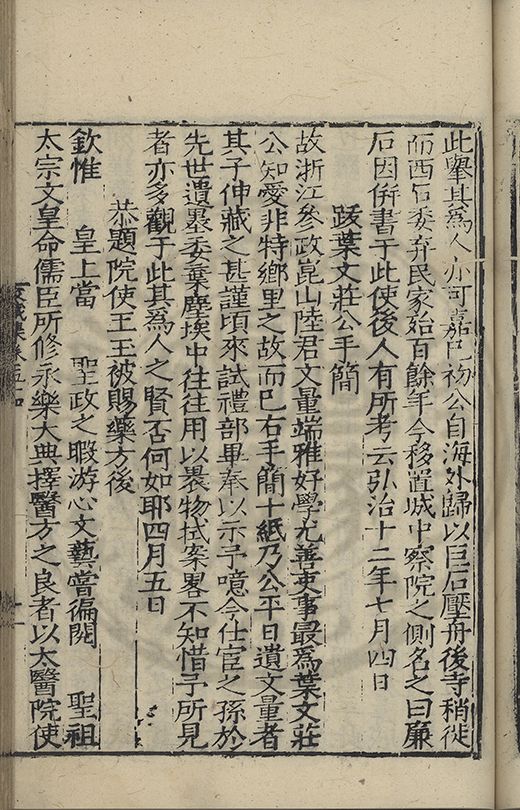 此舉其爲人亦可嘉巳初公自海外歸以巨石壓舟後寺稍徙
而西石委弃民家殆百餘年今移置城中察院之側名之曰廉
石因併書于此使後人有所考云弘治十二年七月四日
跋葉文莊公手簡
故浙江參政崑山陸君文量端雅好學尤善吏事最爲葉文莊
公知愛非特鄉里之故而巳右手簡十紙乃公平日遺文量者
其子伸藏之甚謹頃來試禮部畢奉以示予噫今仕宦之孫於
先世遺墨委棄塵埃中往往用以褁物拭案畧不知惜予所見
者亦多觀于此其爲人之賢否何如耶四月五日
恭題院使王玉被賜藥方後
欽惟 皇上當 聖政之暇游心文藝嘗徧閱 聖祖
太宗文皇命儒臣所修永樂大典擇醫方之良者以太醫院使